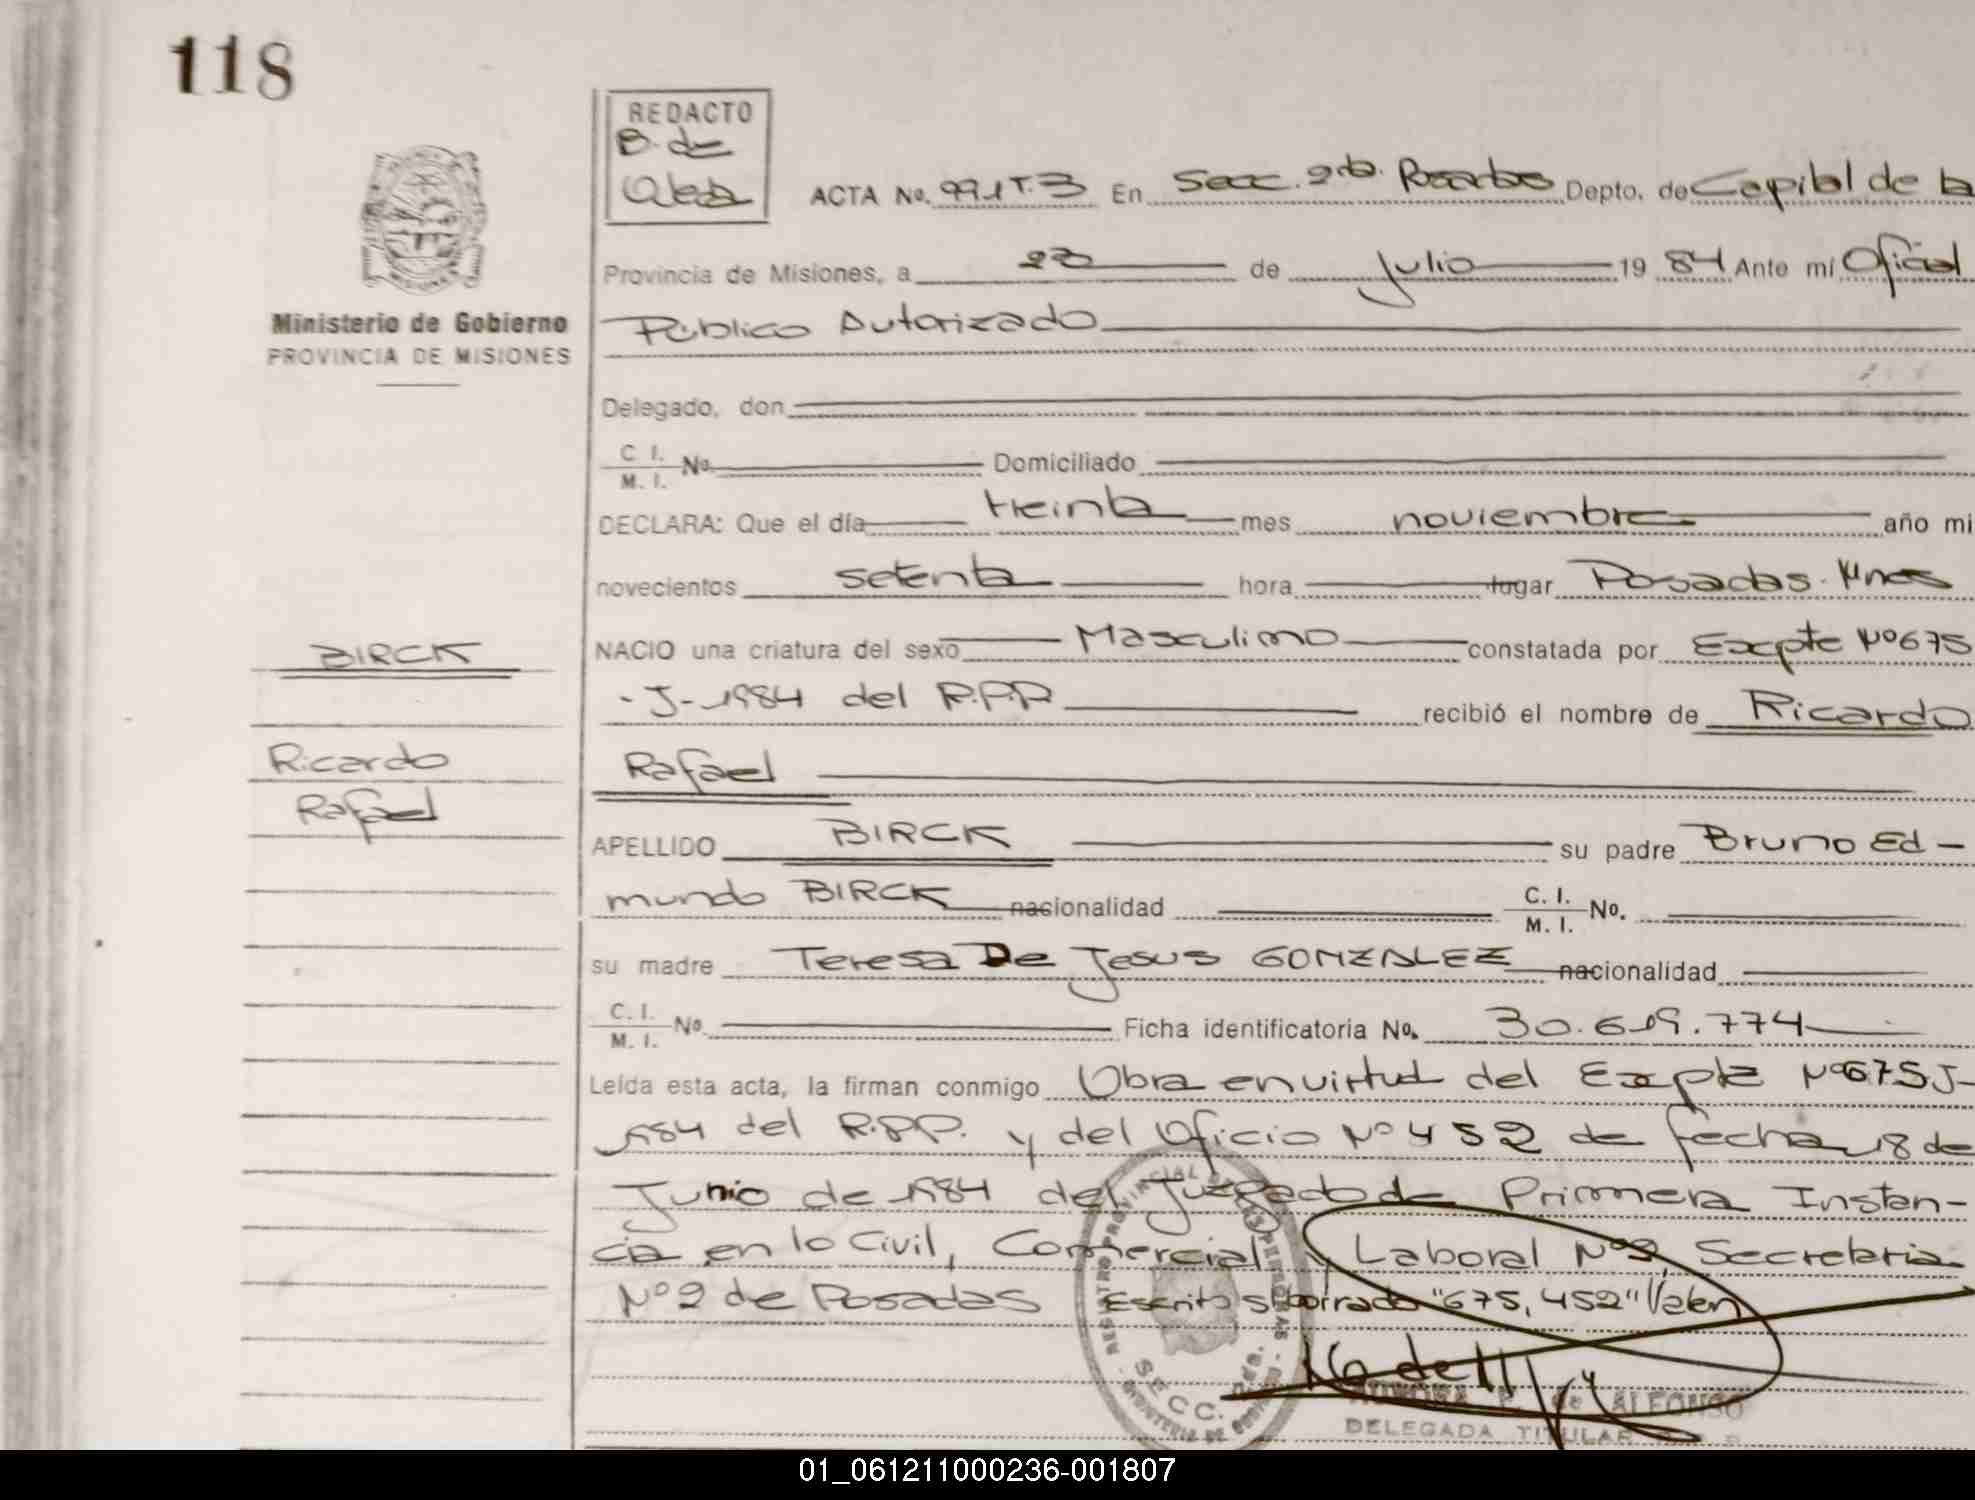 118
REDACTO
B. de
ACTA No. 991 T. 3 En Secc. 2da. Posadas Depto. de Capital de la
Provincia de Misiones, a 23 de Julio 19 84 Ante mí Oficial
Ministerio de Gobierno
PROVINCIA DE MISIONES
Público Autorizado
Delegado, don
C. I.
M. I. No. Domiciliado
DECLARA: Que el día treinta mes noviembre año mi
novecientos setenta hora lugar Posadas. Mnes
BIRCK
NACIO una criatura del sexo Masculino constatada por Expte Nº 675
-J-1984 del R.P.P. recibió el nombre de Ricardo
Ricardo
Rafael
Rafael
APELLIDO BIRCK su padre Bruno Ed-
mundo BIRCK nacionalidad C. I.
M. I. No.
su madre Teresa De Jesus GONZALEZ nacionalidad
C. I.
M. I. No. Ficha identificatoria No. 30.619.774
Leída esta acta, la firman conmigo Obra en virtud del Expte Nº 675 J-
1984 del R.P.P. y del Oficio Nº 452 de fecha 18 de
Junio de 1984 del Juzgado de Primera Instan-
cia en lo Civil, Comercial y Laboral Nº 2, Secretaria
Nº 2 de Posadas Escrito s/borrado "675, 452" Valen
REGISTRO PROVINCIAL DE LAS PERSONAS
SECC. 2da.
MINISTERIO DE GOBIERNO
de ALFONSO
DELEGADA TITULAR
01_061211000236-001807